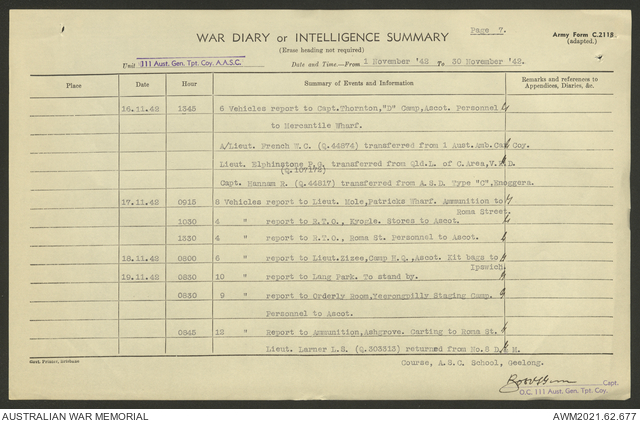 Page 7.
WAR DIARY or INTELLIGENCE SUMMARY
(Erase heading not required)
Army Form C.2118
(adapted.)
Unit 111 Aust. Gen. Tpt. Coy. A.A.S.C.
Date and Time.—From 1 November '42 To 30 November '42.
Place Date Hour Summary of Events and Information Remarks and references to Appendices, Diaries, &c.
16.11.42 1345 6 Vehicles report to Capt.Thornton,"D" Camp,Ascot. Personnel
to Mercantile Wharf.
A/Lieut. French W.C. (Q.44874) transferred from 1 Aust.Amb.Car Coy.
Lieut. Elphinstone P.S. transferred from Qld.L. of C.Area,V.A.D.
(Q.107172)
Capt. Hannam R. (Q.44617) transferred from A.S.D. Type "C",Enoggera.
17.11.42 0915 8 Vehicles report to Lieut. Mole,Patricks Wharf. Ammunition to
Roma Street.
1030 4 " report to R.T.O., Kyogle. Stores to Ascot.
1330 4 " report to R.T.O., Roma St. Personnel to Ascot.
18.11.42 0800 6 " report to Lieut.Zizee,Camp H.Q.,Ascot. Kit bags to
Ipswich
19.11.42 0830 10 " report to Lang Park. To stand by.
0830 9 " report to Orderly Room,Yeerongpilly Staging Camp.
Personnel to Ascot.
0845 12 " Report to Ammunition,Ashgrove. Carting to Roma St.
Lieut. Larner L.S. (Q.303313) returned from No.8 D. & M.
Course, A.S.C. School, Geelong.
Govt. Printer, Brisbane
Capt.
O.C. 111 Aust. Gen. Tpt. Coy.
AUSTRALIAN WAR MEMORIAL
AWM2021.62.677